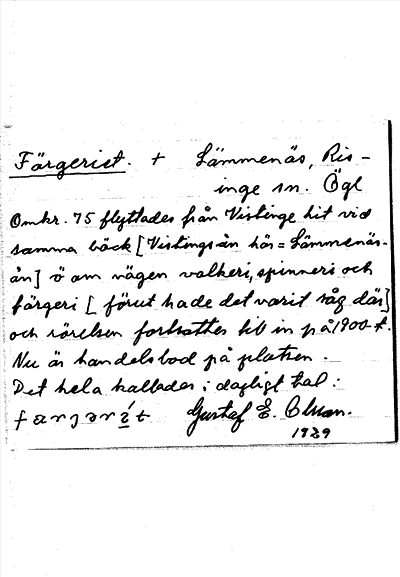 Färgeriet. + Lämmenäs, Ris-
inge sn. Ögl
Omkr. 75 flyttades från Vistinge hit vid
samma bäck [Vistinge-ån här = Lämmenäs-
ån] ö om vägen valkeri, spinneri och
färgeri [förut hade det varit såg där]
och rörelsen fortsattes till in på 1900-t.
Nu är handelsbod på platsen.
Det hela kallades i dagligt tal:
Gustaf E. Olsson.
1929